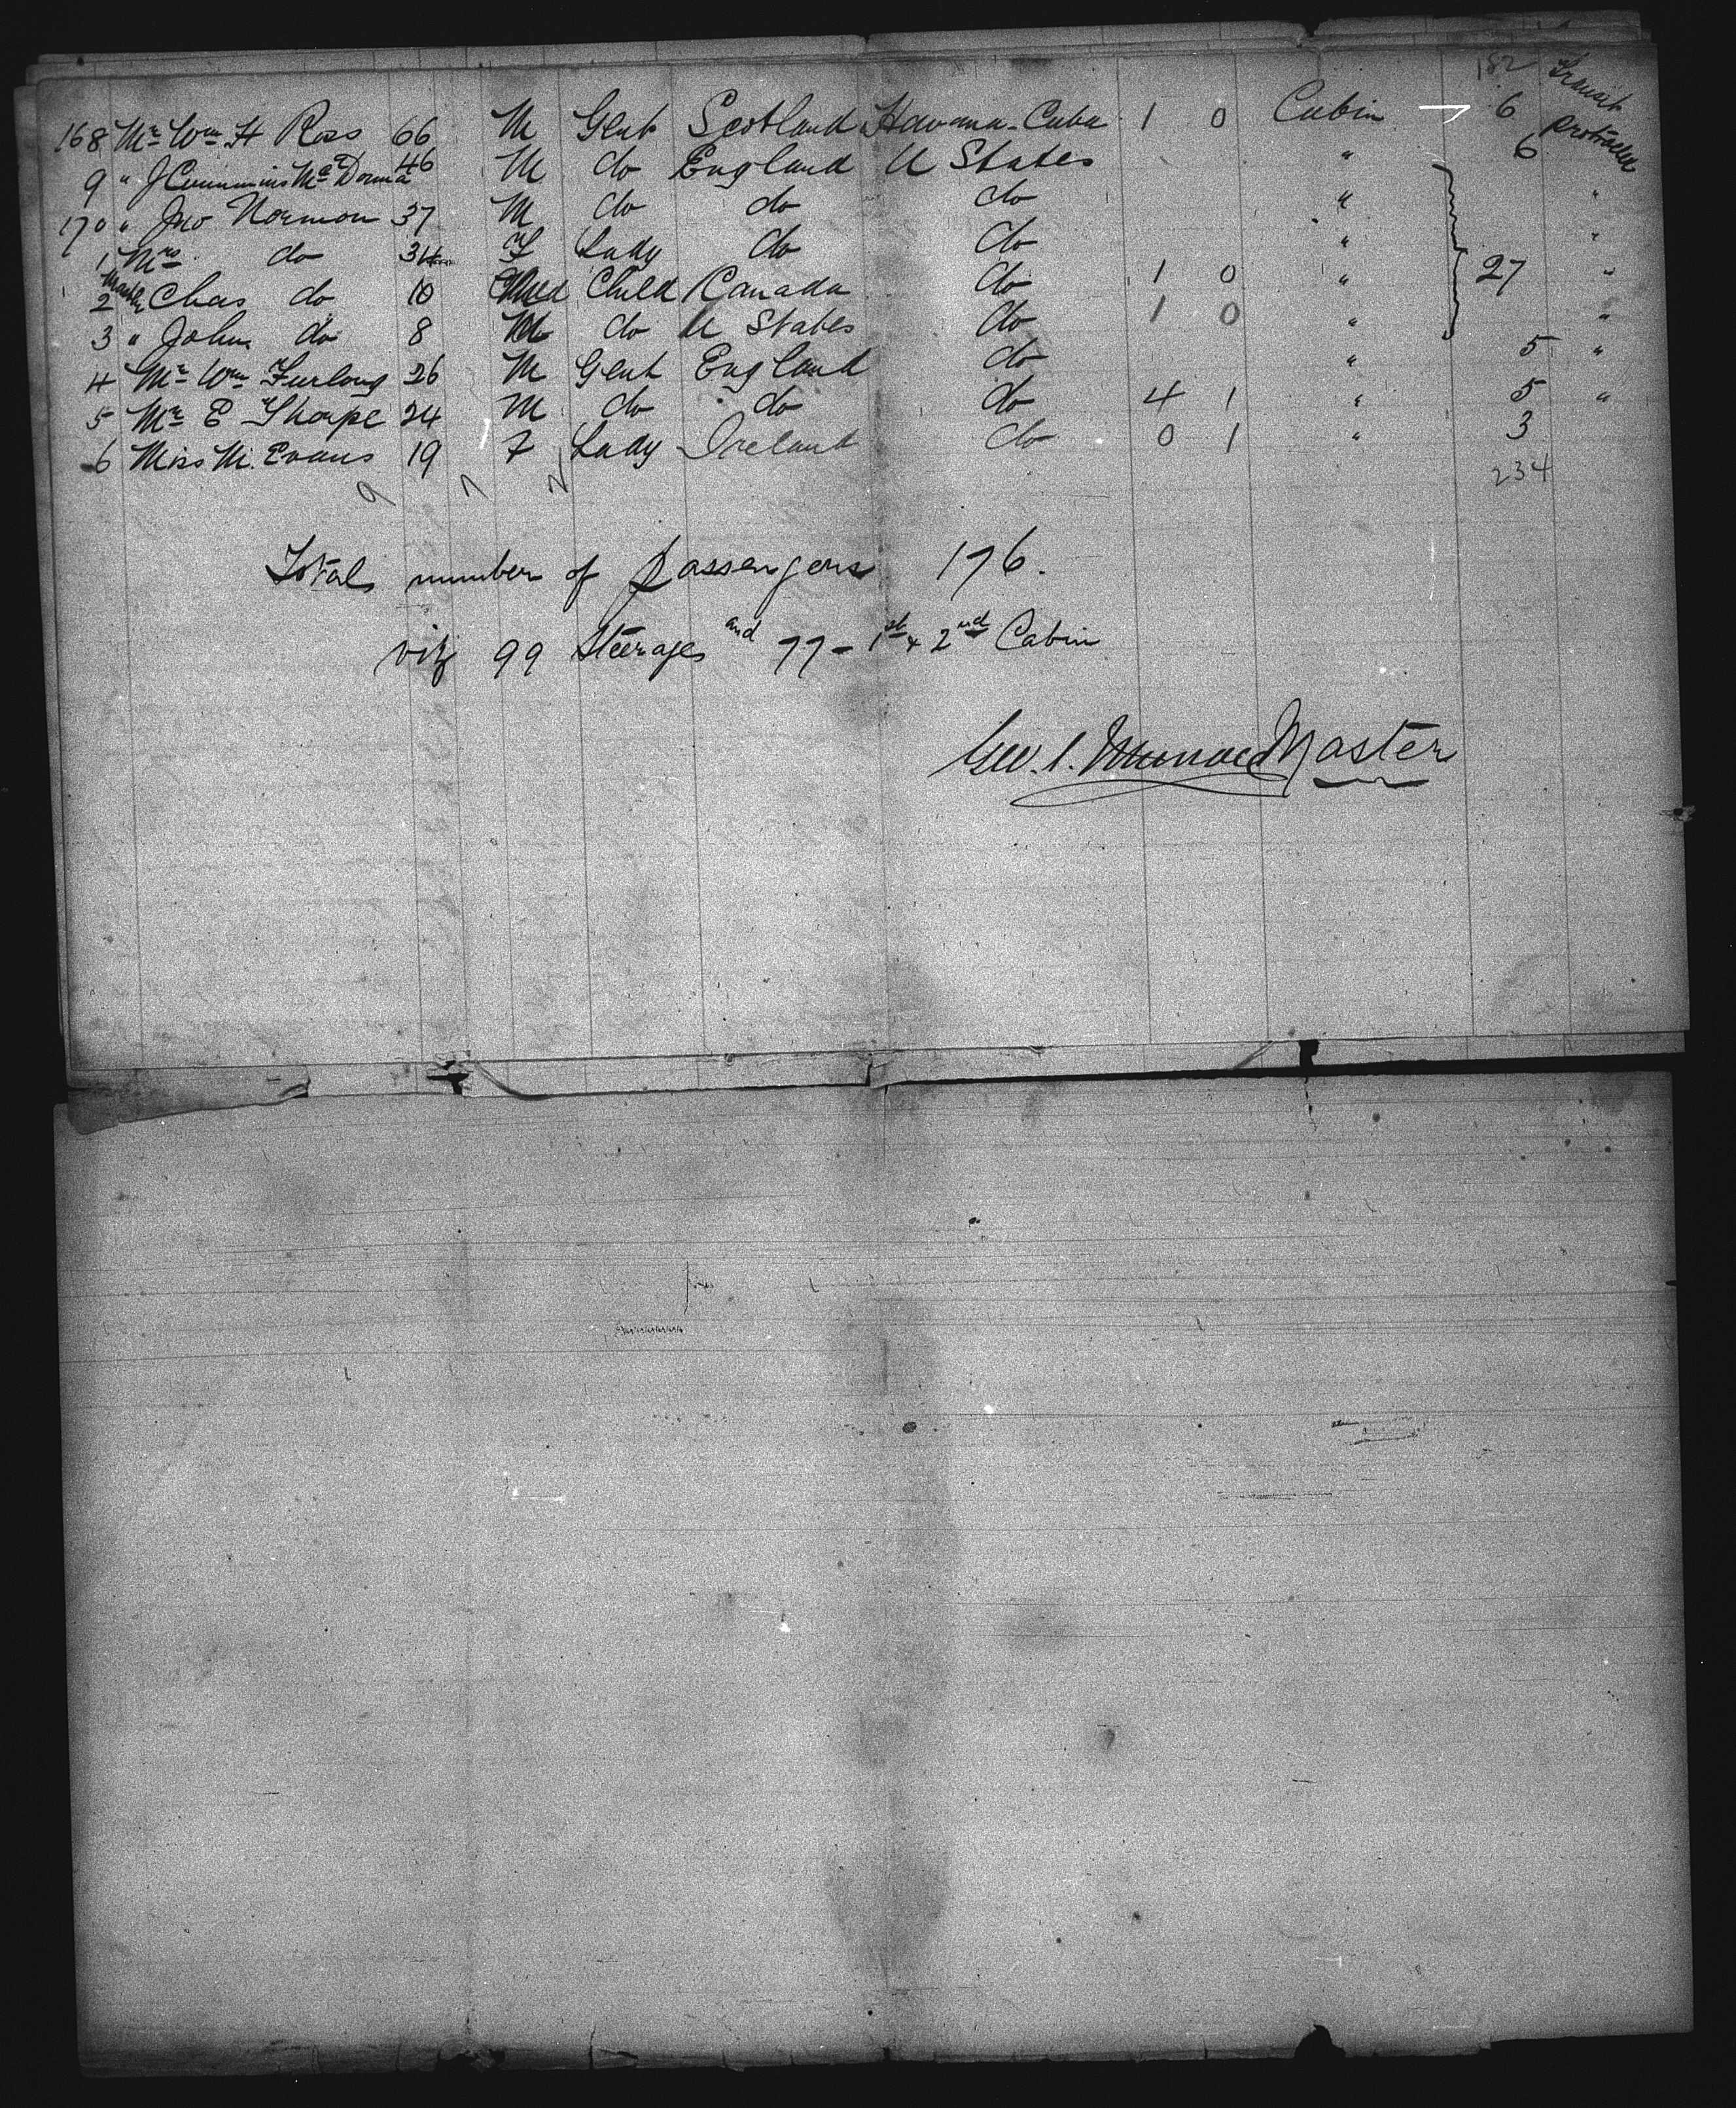 182 Transit
168 Mr Wm H Ross 66 M Gent Scotland Havana-Cuba 1 0 Cabin 6 Protracted
9 " J Cummins 46 M do England U States " 6
170 " Jno Norman 37 M do do do " "
1 Mrs do 34 F Lady do do " "
2 Master Chas do 10 Child Canada do 1 0 " 27 "
3 " John do 8 M do U States do 1 0 " "
4 Mr Wm Furlong 26 M Gent England do " 5 "
5 Mr E Thorpe 24 M do do do 4 1 " 5 "
6 Miss M. Evans 19 F Lady Ireland do 0 1 " 3
234
Total number of passengers 176.
viz 99 Steerages and 77 - 1st & 2nd Cabin
Master